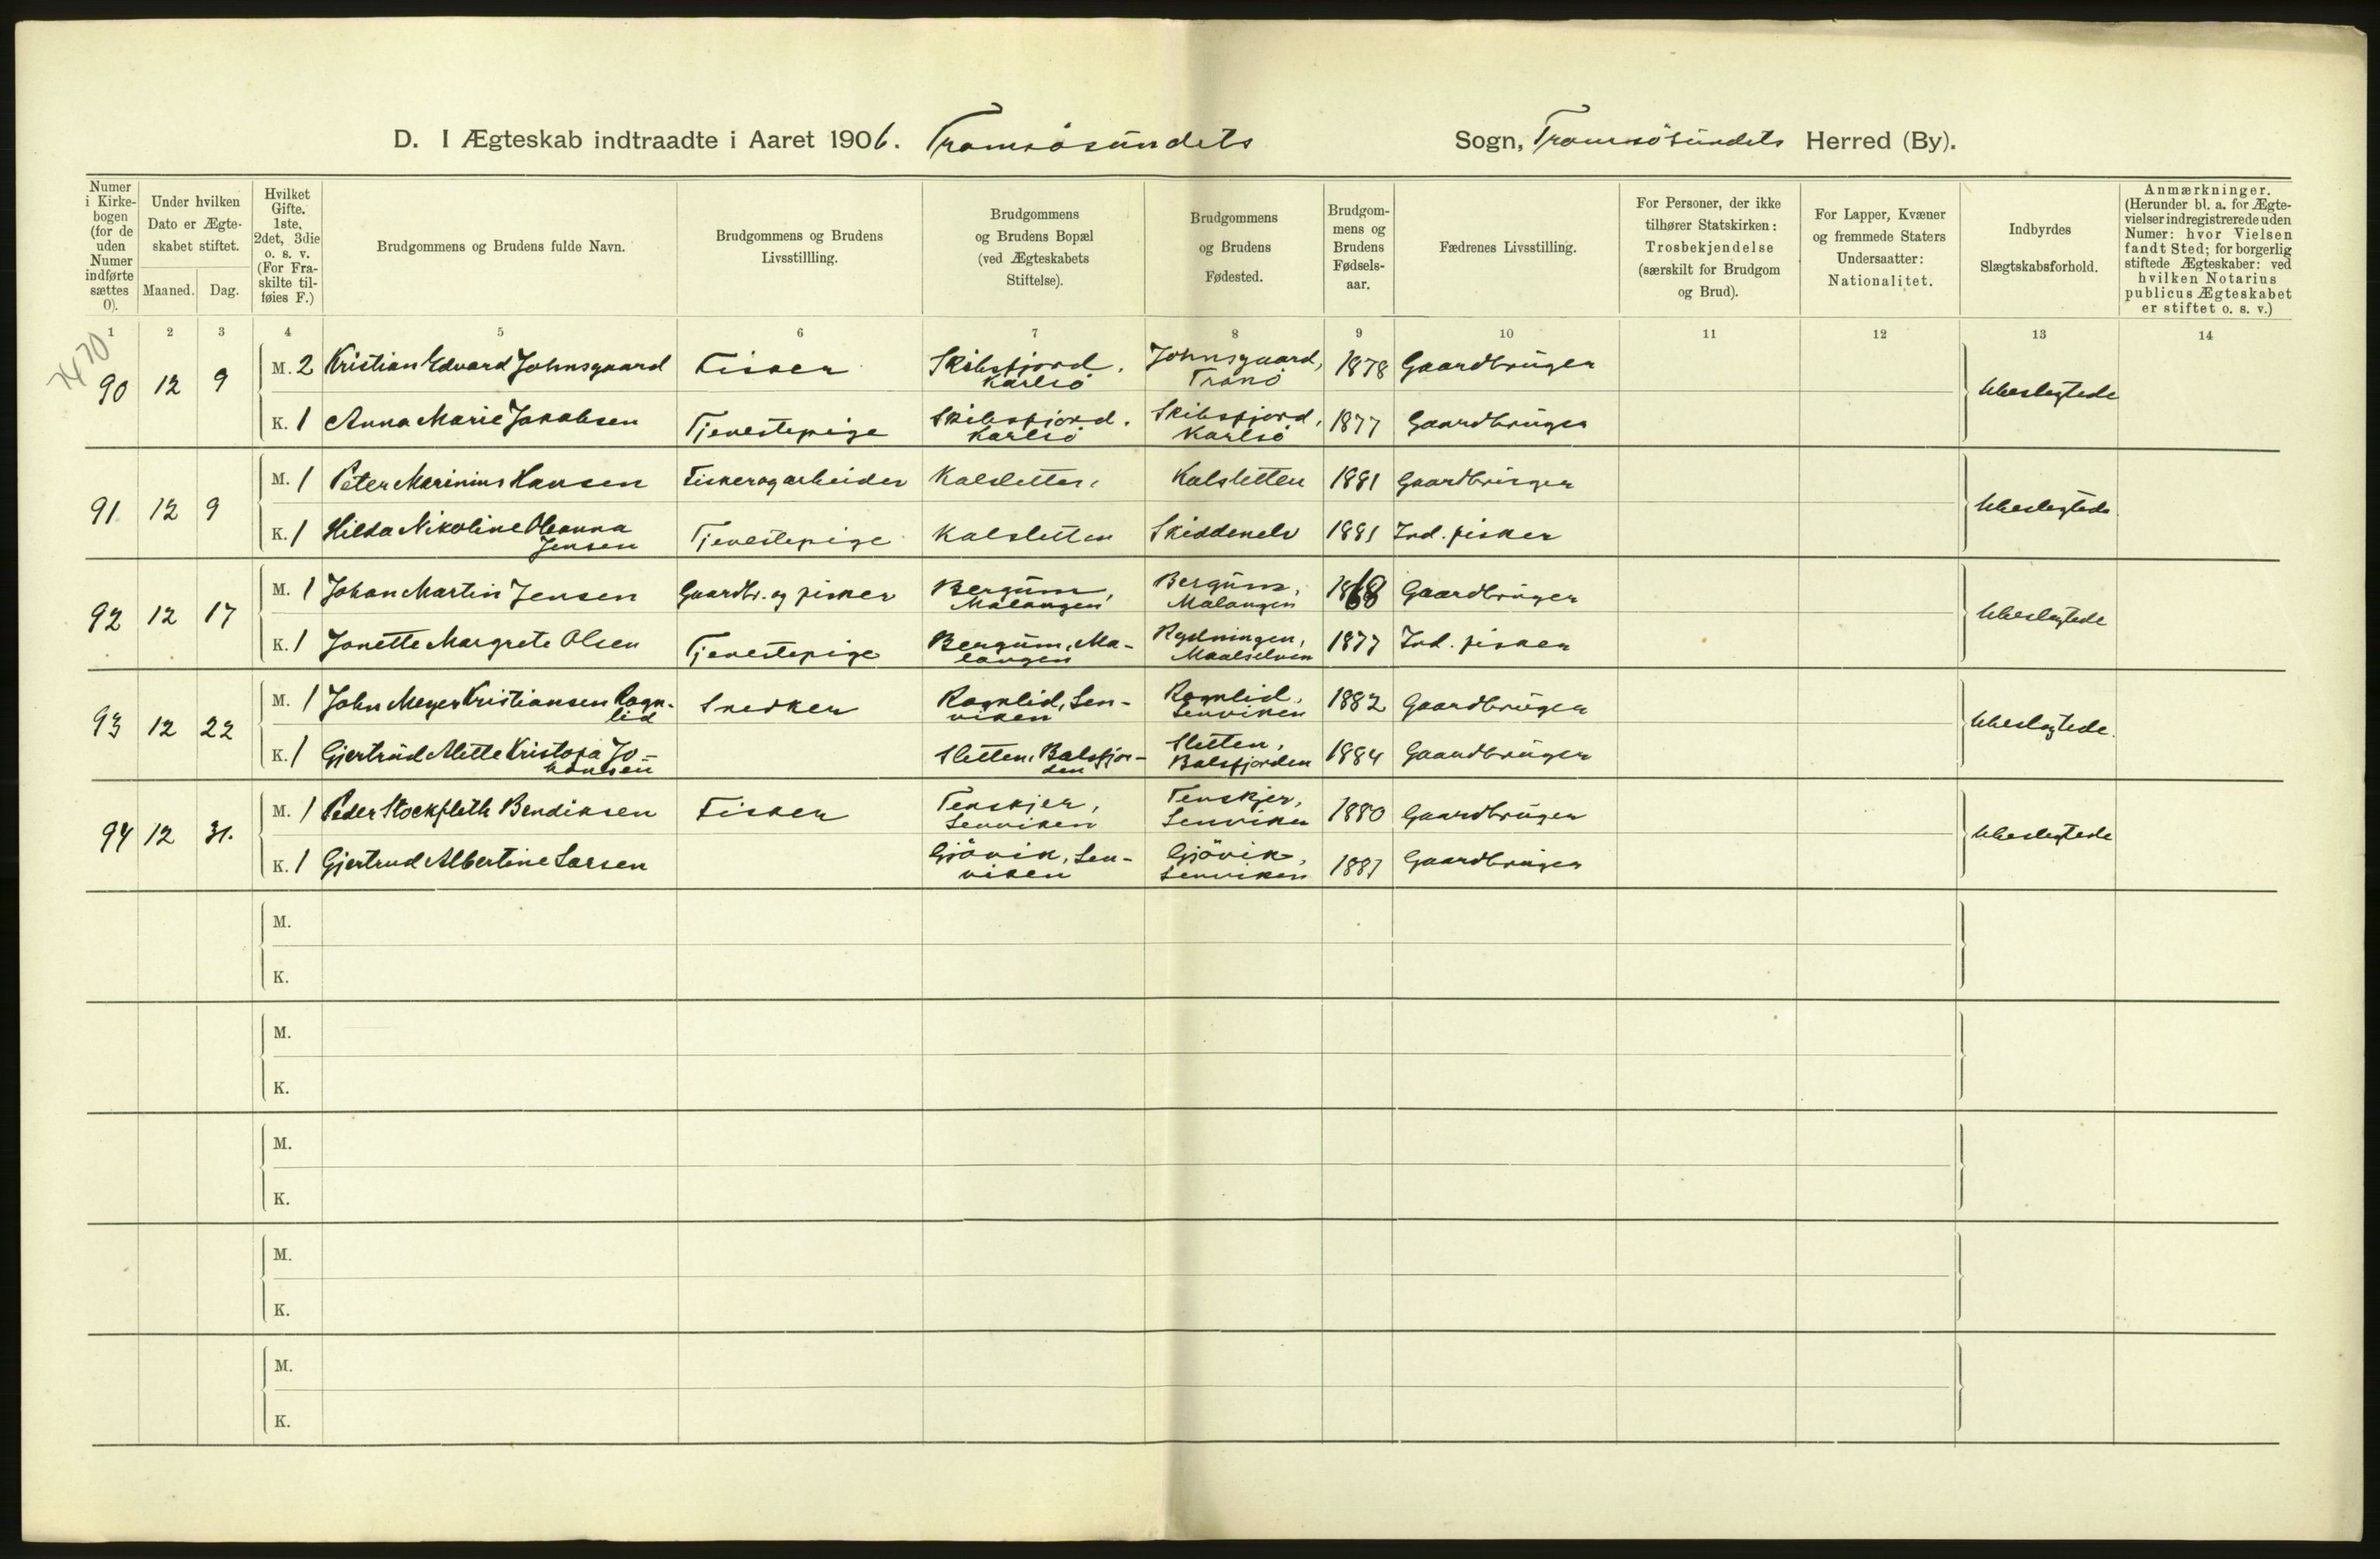 D. I Ægteskab indtraadte i Aaret 1906. Tromsøsundets Sogn, Tromsøsundets Herred (By).
Numer i Kirkebogen (for de uden Numer indførte sættes 0).
Under hvilken Dato er Ægteskabet stiftet.
Maaned. Dag.
Hvilket Gifte. 1ste, 2det, 3die o. s. v. (For Fraskilte tilføies F.)
Brudgommens og Brudens fulde Navn.
Brudgommens og Brudens Livsstillling.
Brudgommens og Brudens Bopæl (ved Ægteskabets Stiftelse).
Brudgommens og Brudens Fødested.
Brudgommens og Brudens Fødselsaar.
Fædrenes Livsstilling.
For Personer, der ikke tilhører Statskirken: Trosbekjendelse (særskilt for Brudgom og Brud).
For Lapper, Kvæner og fremmede Staters Undersaatter: Nationalitet.
Indbyrdes Slægtskabsforhold.
Anmærkninger. (Herunder bl. a. for Ægtevielser indregistrerede uden Numer: hvor Vielsen fandt Sted; for borgerlig stiftede Ægteskaber: ved hvilken Notarius publicus Ægteskabet er stiftet o. s. v.)
1 2 3 4 5 6 7 8 9 10 11 12 13 14
90 12 9 M. 2 Kristian Edvard Johnsgaard Fisker Skibsfjord, Karlsö Johnsgaard, Tranö 1878 Gaardbrüger Ubeslegtede
K. 1 Anna Marie Jakobsen Tjenestepige Skibsfjord, Karlsö Skibsfjord, Karlsö 1877 Gaardbrüger
91 12 9 M. 1 Peter Marinius Hansen Fisker og arbeider Kalsletten Kalsletten 1881 Gaardbrüger Ubeslegtede
K. 1 Hilda Nikoline Oleanna Jensen Tjenestepige Kalsletten Skiddenelv 1881 Ind. fisker
92 12 17 M. 1 Johan Martin Jensen Gaardbr. og fisker Bergüm, Malangen Bergüm, Malangen 1868 Gaardbrüger Ubeslegtede
K. 1 Jonette Margrete Olsen Tjenestepige Bergüm, Malangen Rydningen, Maalselven 1877 Ind. fisker
93 12 22 M. 1 John Meyer Kristiansen Rognlid Snedker Rognlid, Lenviken Rognlid, Lenviken 1882 Gaardbrüger Ubeslegtede.
K. 1 Gjertrüd Mette Kristofa Johansen Sletten, Balsfjorden Sletten, Balsfjorden 1884 Gaardbrüger
94 12 31. M. 1 Peder Stockfleth Bendiksen Fisker Tenskjer, Lenviken Tenskjer, Lenviken 1880 Gaardbrüger Ubeslegtede
K. 1 Gjertrud Albertine Larsen Gjövik, Lenviken Gjövik, Lenviken 1881 Gaardbrüger
M.
K.
M.
K.
M.
K.
M.
K.
M.
K.